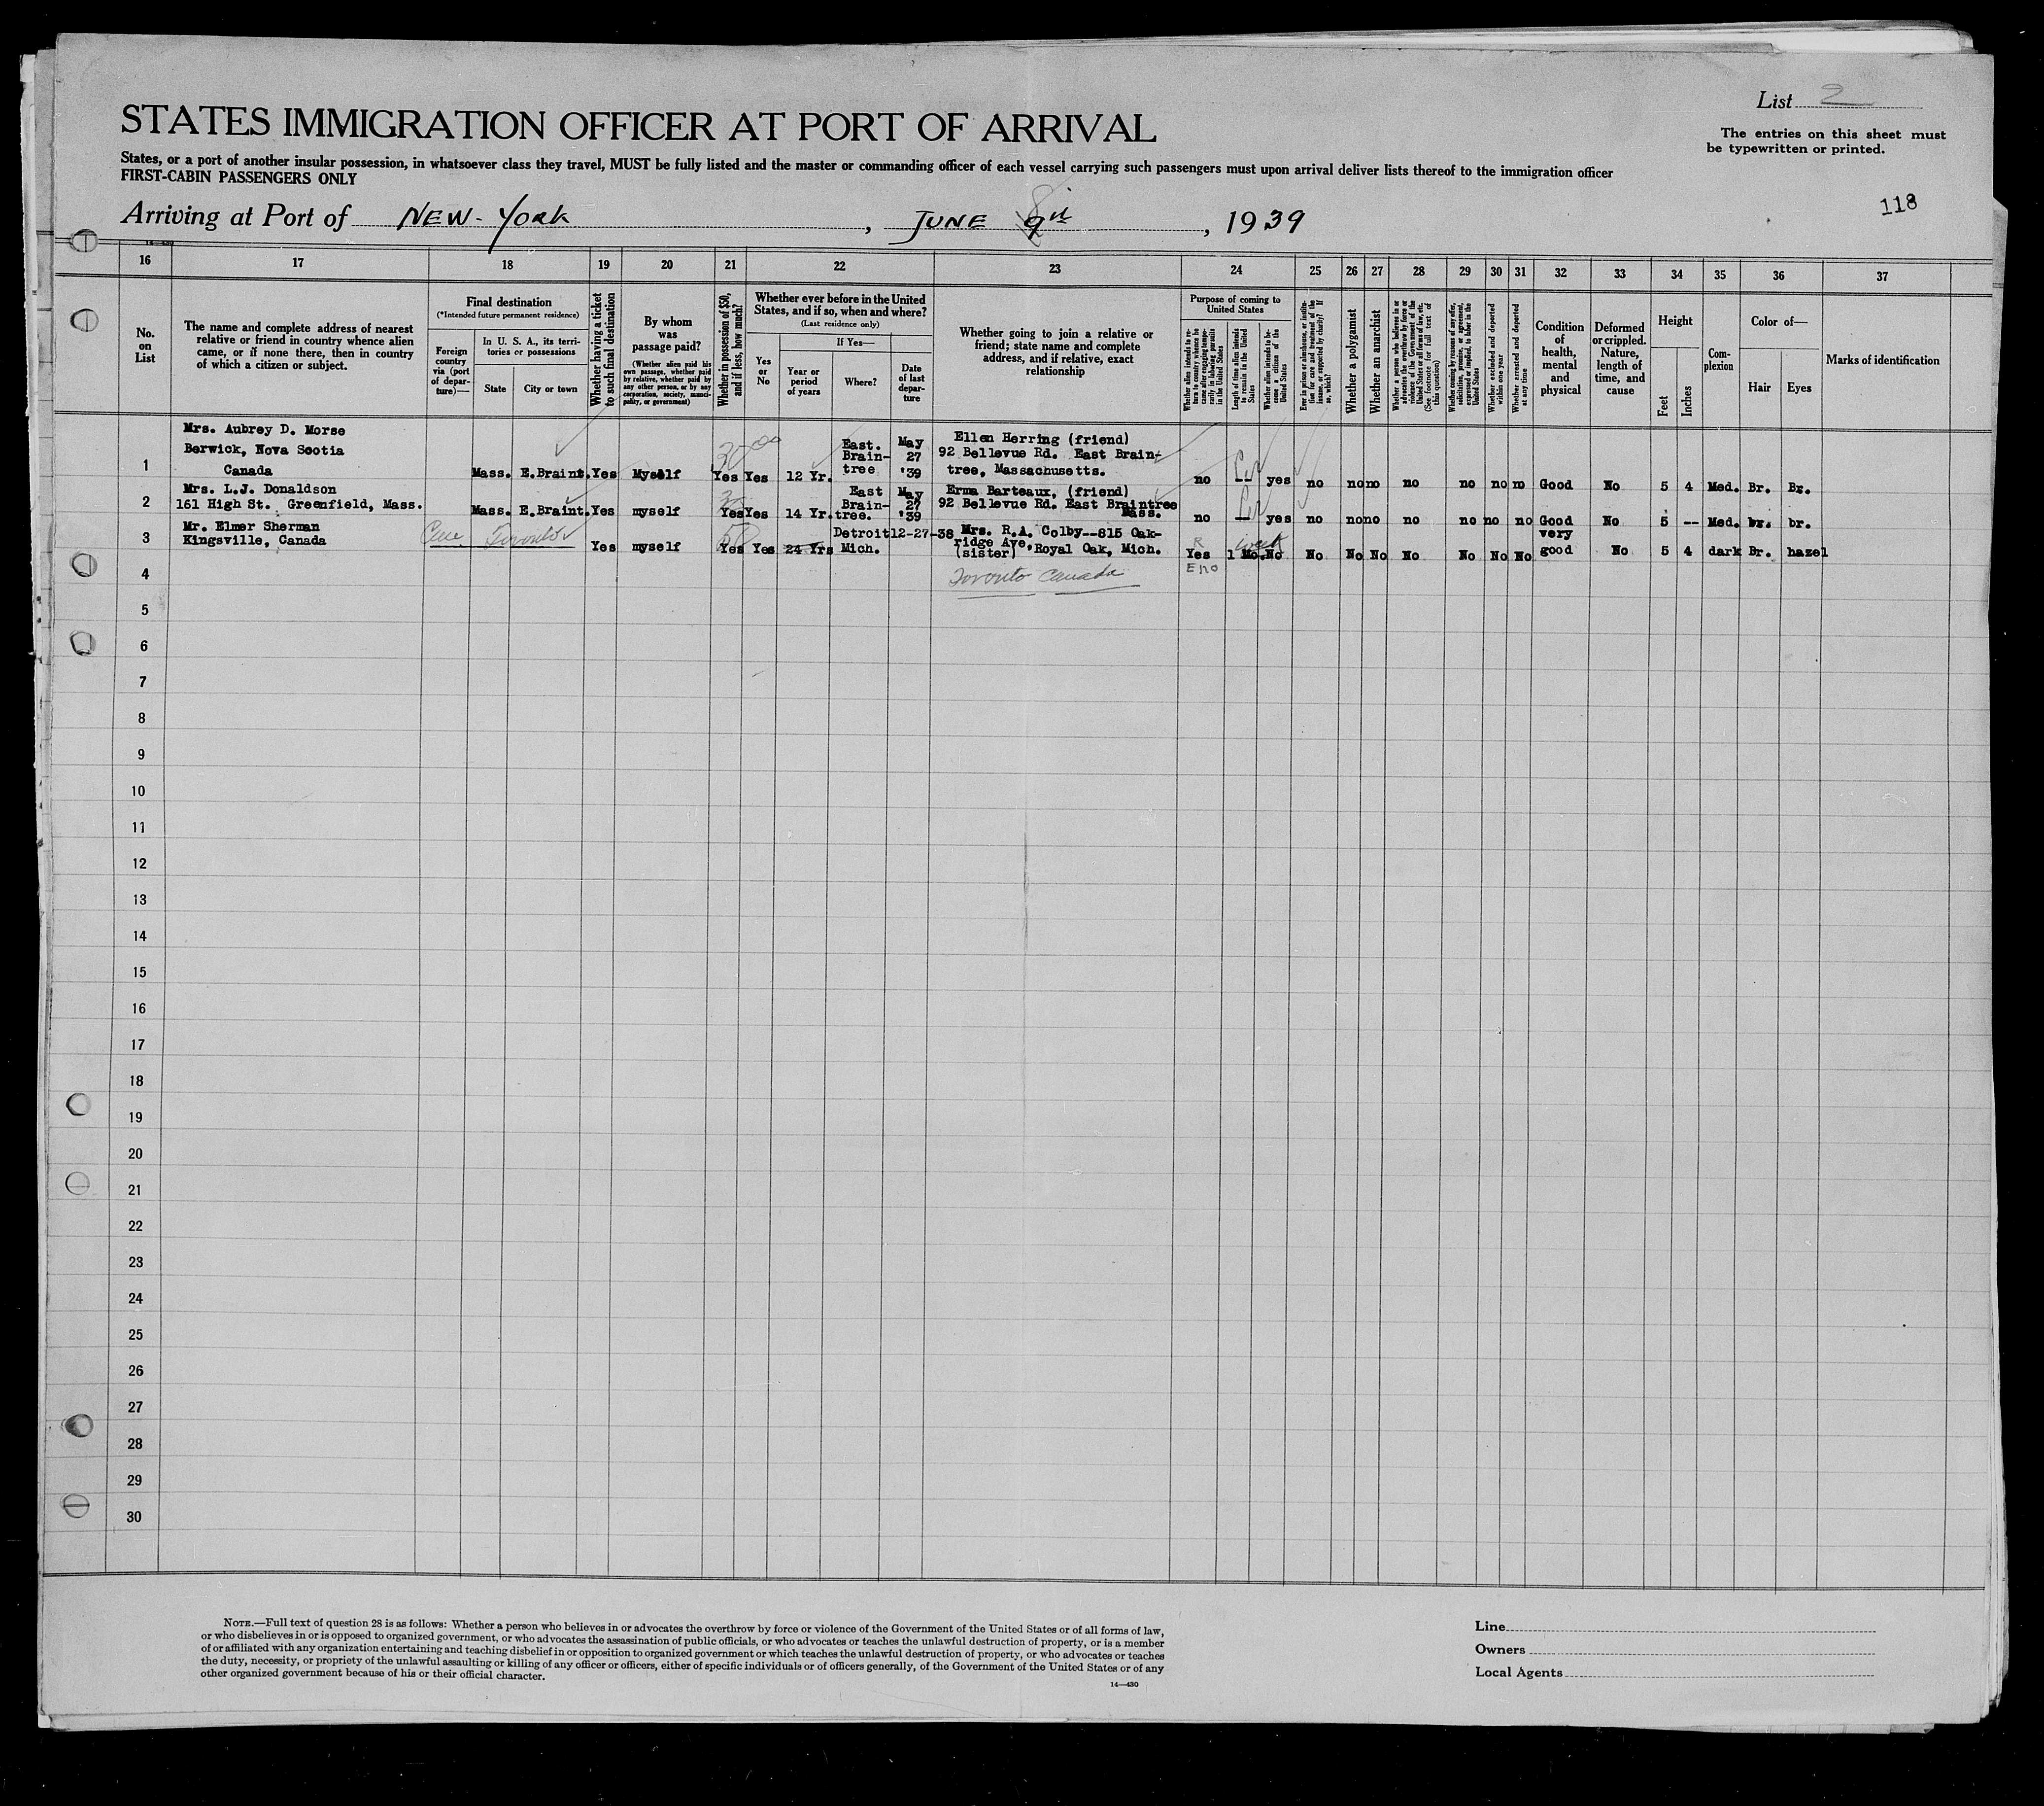 List 2
STATES IMMIGRATION OFFICER AT PORT OF ARRIVAL
The entries on this sheet must
be typewritten or printed.
States, or a port of another insular possession, in whatsoever class they travel, MUST be fully listed and the master or commanding officer of each vessel carrying such passengers must upon arrival deliver lists thereof to the immigration officer
FIRST-CABIN PASSENGERS ONLY
118
Arriving at Port of NEW-York, JUNE 9th, 1939
16 17 18 19 20 21 22 23 24 25 26 27 28 29 30 31 32 33 34 35 36 37
No.
on
List
The name and complete address of nearest
relative or friend in country whence alien
came, or if none there, then in country
of which a citizen or subject.
Final destination
(*Intended future permanent residence)
Foreign
country
via (port
of depar-
ture)—
In U. S. A., its terri-
tories or possessions
State
City or town
Whether having a ticket
to such final destination
By whom
was
passage paid?
(Whether alien paid his
own passage, whether paid
by relative, whether paid by
any other person, or by any
corporation, society, munici-
pality, or government)
Whether in possession of $50,
and if less, how much?
Whether ever before in the United
States, and if so, when and where?
(Last residence only)
Yes
or
No
If Yes—
Year or
period
of years
Where?
Date
of last
depar-
ture
Whether going to join a relative or
friend; state name and complete
address, and if relative, exact
relationship
Purpose of coming to
United States
Whether alien intends to re-
turn to country whence he
came after engaging tempo-
rarily in laboring pursuits
in the United States
Length of time alien intends
to remain in the United
States
Whether alien intends to be-
come a citizen of the
United States
Ever in prison or almshouse, or institu-
tion for care and treatment of the
insane, or supported by charity? If
so, which?
Whether a polygamist
Whether an anarchist
Whether a person who believes in or
advocates the overthrow by force or
violence of the Government of the
United States or all forms of law, etc.
(See footnote for full text of
this question)
Whether coming by reason of any offer,
solicitation, promise, or agreement,
expressed or implied, to labor in the
United States
Whether excluded and deported
within one year
Whether arrested and deported
at any time
Condition
of
health,
mental
and
physical
Deformed
or crippled.
Nature,
length of
time, and
cause
Height
Feet
Inches
Com-
plexion
Color of—
Hair
Eyes
Marks of identification
Mrs. Aubrey D. Morse
Berwick, Nova Scotia
Canada
1 Mass. E.Braint. Yes Myself Yes Yes 12 Yr.
East.
Brain-
tree
May
27
'39
Ellen Herring (friend)
92 Bellevue Rd. East Brain-
tree, Massachusetts.
no -- yes no no no no no no no Good No 5 4 Med. Br. Br.
Mrs. L.J. Donaldson
2 161 High St. Greenfield, Mass. Mass. E.Braint. Yes myself Yes Yes 14 Yr.
East
Brain-
tree.
May
27
'39
Erma Barteaux, (friend)
92 Bellevue Rd. East Braintree
Mass.
no -- yes no no no no no no no Good No 5 -- Med. br. br.
Mr. Elmer Sherman
3 Kingsville, Canada Toronto Yes myself 50 Yes Yes 24 Yrs
Detroit
Mich.
12-27-38
Mrs. R.A. Colby--815 Oak-
ridge Ave.
(sister) Royal Oak, Mich.
R
Yes 1 Mo. week No No No No No No No No very
good No 5 4 dark Br. hazel
4 Toronto Canada E no
5
6
7
8
9
10
11
12
13
14
15
16
17
18
19
20
21
22
23
24
25
26
27
28
29
30
NOTE.—Full text of question 28 is as follows: Whether a person who believes in or advocates the overthrow by force or violence of the Government of the United States or of all forms of law,
or who disbelieves in or is opposed to organized government, or who advocates the assassination of public officials, or who advocates or teaches the unlawful destruction of property, or is a member
of or affiliated with any organization entertaining and teaching disbelief in or opposition to organized government or which teaches the unlawful destruction of property, or who advocates or teaches
the duty, necessity, or propriety of the unlawful assaulting or killing of any officer or officers, either of specific individuals or of officers generally, of the Government of the United States or of any
other organized government because of his or their official character.
14—430
Line
Owners
Local Agents